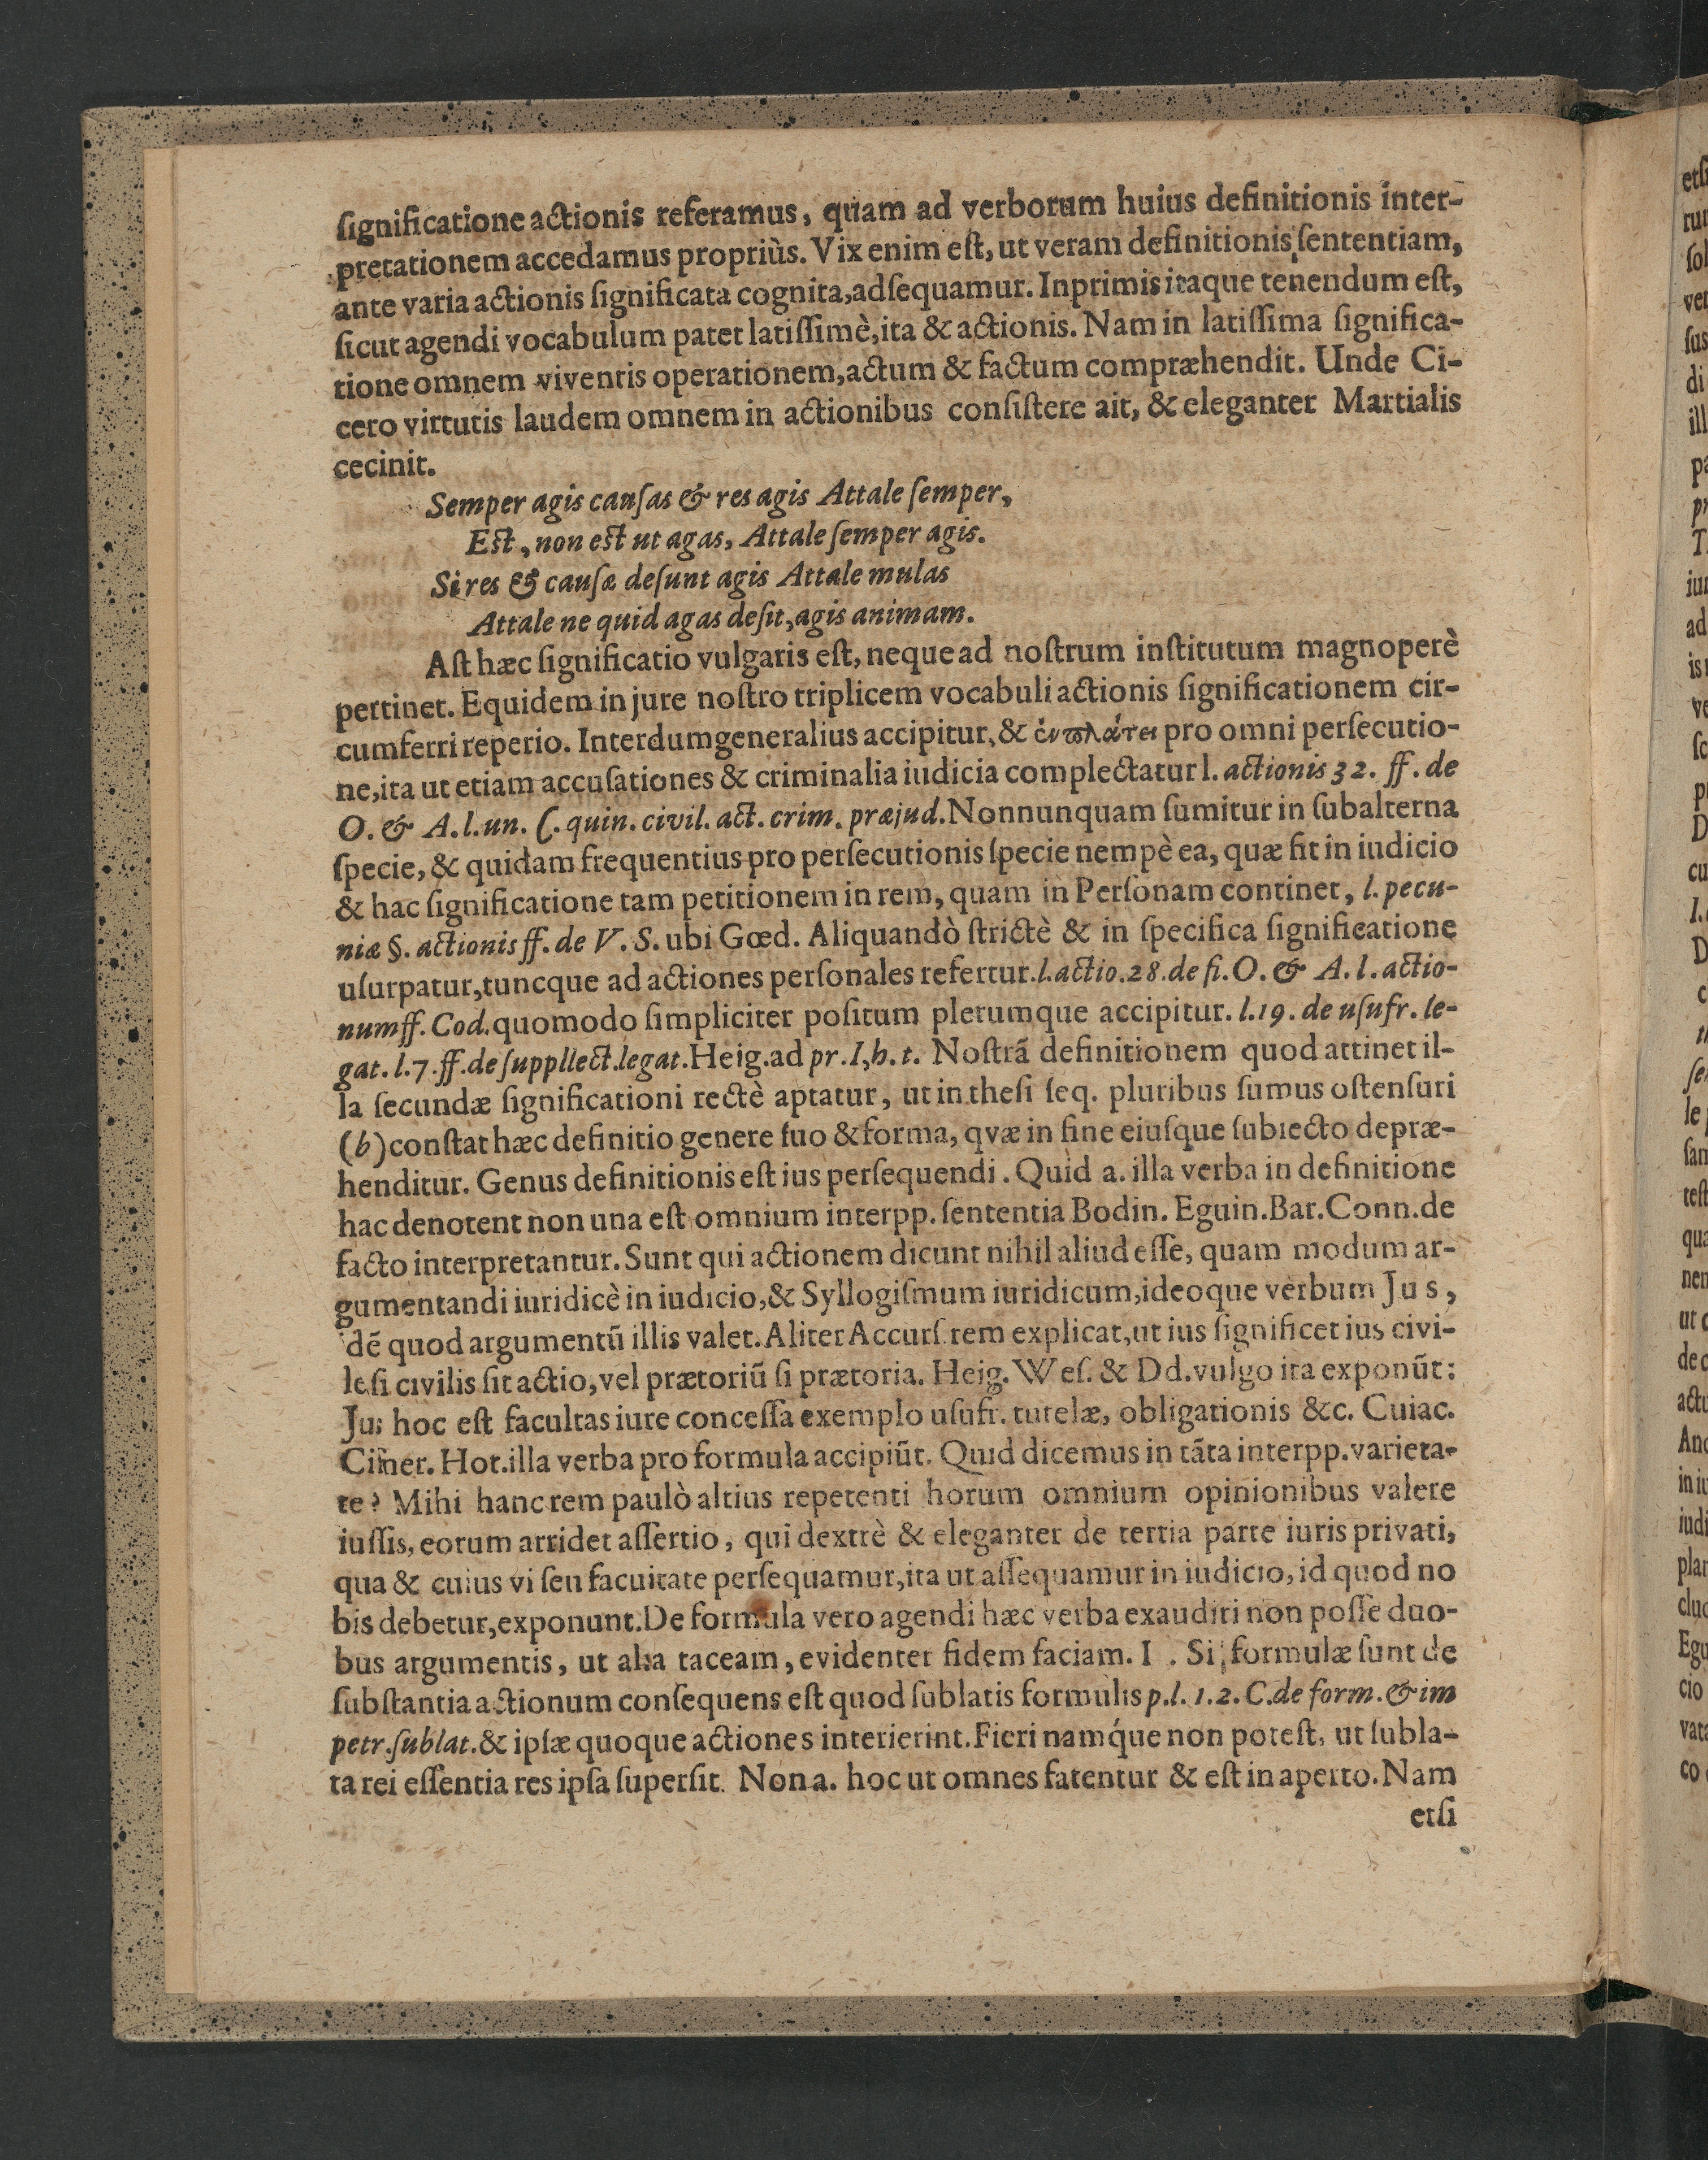 ſignificatione actionis referamus, quam ad verborum huius definitionis inter-
pretationem accedamus propriùs. Vix enim eſt, ut veram definitionis ſententiam,
ante varia actionis ſignificata cognita,adſequamur. Inprimis itaque tenendum eſt,
ſicut agendi vocabulum patet latiſſimè,ita & actionis. Nam in latiſſima ſignifica-
tione omnem viventis operationem,actum & factum compræhendit. Unde Ci-
cero virtutis laudem omnem in actionibus conſiſtere ait, & eleganter Martialis
cecinit.
Semper agis cauſas & res agis Attale ſemper,
Eſt, non eſt ut agas, Attale ſemper agis.
Si res & cauſæ deſunt agis Attale mulas
Attale ne quid agas deſit,agis animam.
Aſt hæc ſignificatio vulgaris eſt, neque ad noſtrum inſtitutum magnoperè
pertinet. Equidem in jure noſtro triplicem vocabuli actionis ſignificationem cir-
cumferri reperio. Interdum generalius accipitur, & ἐν πλάτει pro omni perſecutio-
ne,ita ut etiam accuſationes & criminalia iudicia complectatur l. actionis 32. ff. de
O. & A. l. un. C. quin. civil. act. crim. præjud. Nonnunquam ſumitur in ſubalterna
ſpecie, & quidam frequentius pro perſecutionis ſpecie nempè ea, quæ fit in iudicio
& hac ſignificatione tam petitionem in rem, quam in Perſonam continet, l. pecu-
niæ §. actionis ff. de V. S. ubi Gœd. Aliquandò ſtrictè & in ſpecifica ſignificatione
uſurpatur,tuncque ad actiones perſonales refertur. l. actio. 28. de fi. O. & A. l. actio-
num ff. Cod. quomodo ſimpliciter poſitum plerumque accipitur. l. 19. de uſufr. le-
gat. l. 7. ff. de ſuppllect. legat. Heig. ad pr. I, h. t. Noſtrã definitionem quod attinet il-
la ſecundæ ſignificationi rectè aptatur, ut in theſi ſeq. pluribus ſumus oſtenſuri
(b) conſtat hæc definitio genere ſuo & forma, qvæ in fine eiuſque ſubiecto depræ-
henditur. Genus definitionis eſt ius perſequendi. Quid a. illa verba in definitione
hac denotent non una eſt omnium interpp. ſententia Bodin. Eguin. Bar. Conn. de
facto interpretantur. Sunt qui actionem dicunt nihil aliud eſſe, quam modum ar-
gumentandi iuridicè in iudicio,& Syllogiſmum iuridicum,ideoque verbum Jus,
dẽ quod argumentũ illis valet. Aliter Accurſ. rem explicat,ut ius ſignificet ius civi-
le ſi civilis ſit actio,vel prætoriũ ſi prætoria. Heig. Weſ. & Dd. vulgo ita exponũt:
Jus hoc eſt facultas iure conceſſa exemplo uſufr. tutelæ, obligationis &c. Cuiac.
Cimer. Hot. illa verba pro formula accipiũt. Quid dicemus in tãta interpp. varieta-
te? Mihi hanc rem paulò altius repetenti horum omnium opinionibus valere
iuſſis, eorum arridet aſſertio, qui dextrè & eleganter de tertia parte iuris privati,
qua & cuius vi ſeu facultate perſequamur,ita ut aſſequamur in iudicio, id quod no
bis debetur,exponunt. De formula vero agendi hæc verba exaudiri non poſſe duo-
bus argumentis, ut alia taceam, evidenter fidem faciam. I. Si formulæ ſunt de
ſubſtantia actionum conſequens eſt quod ſublatis formulis p. l. 1. 2. C. de form. & im
petr. ſublat. & ipſæ quoque actiones interierint. Fieri namq́ue non poteſt, ut ſubla-
ta rei eſſentia res ipſa ſuperſit. Non a. hoc ut omnes fatentur & eſt in aperto. Nam
etſi